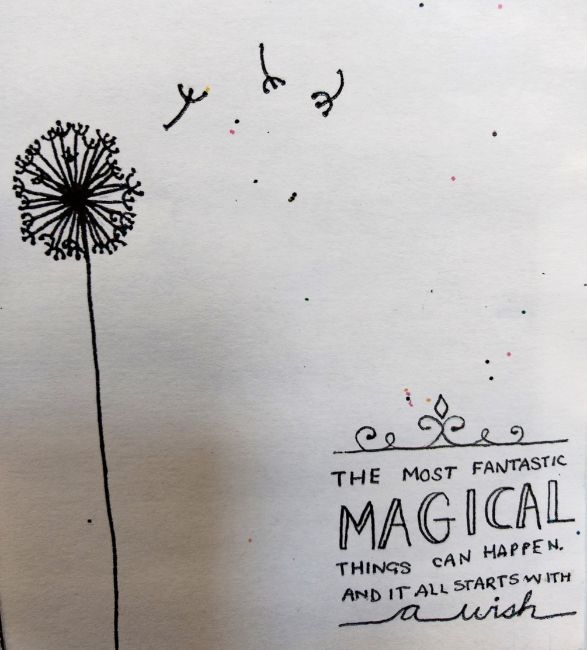 THE MOST FANTASTIC
MAGICAL
THINGS CAN HAPPEN.
AND IT ALL STARTS WITH
a wish